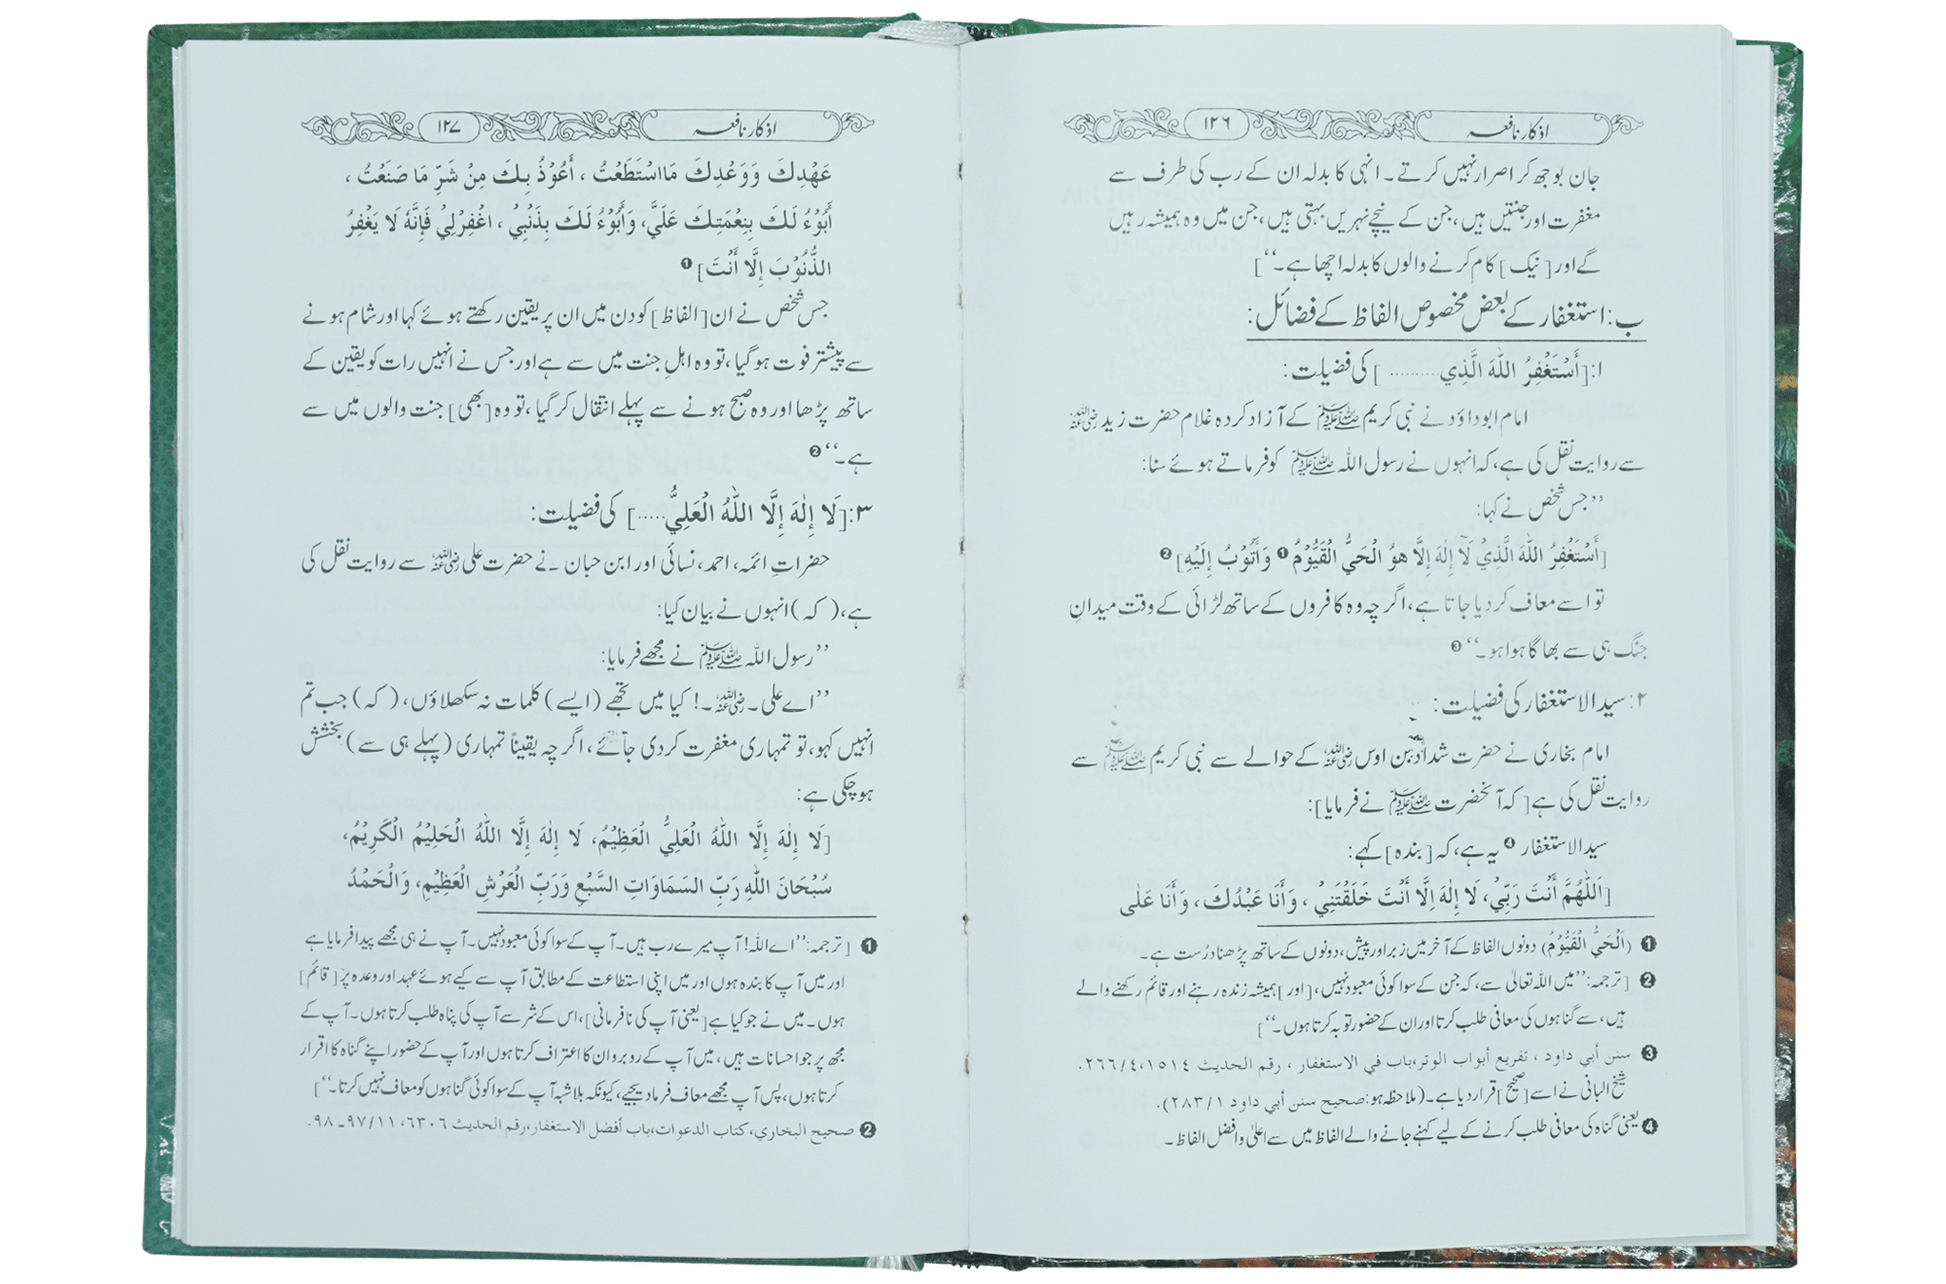 اذکار نافعہ
۱۲۶
جان بوجھ کر اصرار نہیں کرتے۔ انہی کا بدلہ ان کے رب کی طرف سے
مغفرت اور جنتیں ہیں، جن کے نیچے نہریں بہتی ہیں، جن میں وہ ہمیشہ رہیں
گے اور [نیک] کام کرنے والوں کا بدلہ اچھا ہے۔‘‘]
ب: استغفار کے بعض مخصوص الفاظ کے فضائل:
۱: [أَسْتَغْفِرُ اللّٰهَ الَّذِي ..........] کی فضیلت:
امام ابوداؤد نے نبی کریم ﷺ کے آزاد کردہ غلام حضرت زید رضی اللہ عنہ
سے روایت نقل کی ہے، کہ انہوں نے رسول اللہ ﷺ کو فرماتے ہوئے سنا:
’’جس شخص نے کہا:
[أَسْتَغْفِرُ اللّٰهَ الَّذِيْ لَآ إِلٰهَ إِلَّا هوُ الْحَيُّ الْقَيُّوْمُ ❶ وَأَتُوْبُ إِلَيْهِ] ❷
تو اسے معاف کر دیا جاتا ہے، اگرچہ وہ کافروں کے ساتھ لڑائی کے وقت میدانِ
جنگ ہی سے بھاگا ہوا ہو۔‘‘ ❸
۲: سید الاستغفار کی فضیلت:
امام بخاری نے حضرت شداد بن اوس رضی اللہ عنہ کے حوالے سے نبی کریم ﷺ سے
روایت نقل کی ہے [کہ آنحضرت ﷺ نے فرمایا]:
سید الاستغفار ❹ یہ ہے، کہ [بندہ] کہے:
[اَللّٰهُمَّ أَنْتَ رَبِّيْ، لَا إِلٰهَ إِلَّا أَنْتَ خَلَقْتَنِيْ ، وَأَنَا عَبْدُكَ ، وَأَنَا عَلٰى
❶ (اَلْحَيُّ الْقَيُّوْمُ) دونوں الفاظ کے آخر میں زبر اور پیش، دونوں کے ساتھ پڑھنا درُست ہے۔
❷ [ترجمہ: ’’میں اللہ تعالیٰ سے، کہ جن کے سوا کوئی معبود نہیں، [اور] ہمیشہ زندہ رہنے اور قائم رکھنے والے
ہیں، سے گناہوں کی معافی طلب کرتا اور ان کے حضور توبہ کرتا ہوں۔‘‘]
❸ سنن أبي داود ، تفريع أبواب الوتر، باب في الاستغفار ، رقم الحديث ١٥١٤، ٤/٢٦٦.
شیخ البانی نے اسے [صحیح] قرار دیا ہے۔ (ملاحظہ ہو: صحيح سنن أبي داود ١/٢٨٣).
❹ یعنی گناہ کی معافی طلب کرنے کے لیے کہے جانے والے الفاظ میں سے اعلیٰ و افضل الفاظ۔
اذکار نافعہ
۱۲۷
عَهْدِكَ وَوَعْدِكَ مَا اسْتَطَعْتُ ، أَعُوْذُ بِكَ مِنْ شَرِّ مَا صَنَعْتُ ،
أَبُوْءُ لَكَ بِنِعْمَتِكَ عَلَيَّ، وَأَبُوْءُ لَكَ بِذَنْبِيْ ، اغْفِرْلِيْ فَإِنَّهٗ لَا يَغْفِرُ
الذُّنُوْبَ إِلَّا أَنْتَ] ❶
جس شخص نے ان [الفاظ] کو دن میں ان پر یقین رکھتے ہوئے کہا اور شام ہونے
سے پیشتر فوت ہو گیا، تو وہ اہلِ جنت میں سے ہے اور جس نے انہیں رات کو یقین کے
ساتھ پڑھا اور وہ صبح ہونے سے پہلے انتقال کر گیا، تو وہ [بھی] جنت والوں میں سے
ہے۔‘‘ ❷
۳: [لَا إِلٰهَ إِلَّا اللّٰهُ الْعَلِيُّ.....] کی فضیلت:
حضراتِ ائمہ، احمد، نسائی اور ابن حبان نے حضرت علی رضی اللہ عنہ سے روایت نقل کی
ہے، (کہ) انہوں نے بیان کیا:
’’رسول اللہ ﷺ نے مجھے فرمایا:
’’اے علی۔ رضی اللہ عنہ۔! کیا میں تجھے (ایسے) کلمات نہ سکھلاؤں، (کہ) جب تم
انہیں کہو، تو تمہاری مغفرت کر دی جائے، اگرچہ یقیناً تمہاری (پہلے ہی سے) بخشش
ہو چکی ہے:
[لَا إِلٰهَ إِلَّا اللّٰهُ الْعَلِيُّ الْعَظِيْمُ، لَا إِلٰهَ إِلَّا اللّٰهُ الْحَلِيْمُ الْكَرِيْمُ،
سُبْحَانَ اللّٰهِ رَبِّ السَمَاوَاتِ السَّبْعِ وَرَبِّ الْعَرْشِ الْعَظِيْمِ، وَالْحَمْدُ
❶ [ترجمہ: ’’اے اللہ! آپ میرے رب ہیں۔ آپ کے سوا کوئی معبود نہیں۔ آپ نے ہی مجھے پیدا فرمایا ہے
اور میں آپ کا بندہ ہوں اور میں اپنی استطاعت کے مطابق آپ سے کیے ہوئے عہد اور وعدہ پر [قائم]
ہوں۔ میں نے جو کیا ہے [یعنی آپ کی نافرمانی]، اس کے شر سے آپ کی پناہ طلب کرتا ہوں۔ آپ کے
مجھ پر جو احسانات ہیں، میں آپ کے روبرو ان کا اعتراف کرتا ہوں اور آپ کے حضور اپنے گناہ کا اقرار
کرتا ہوں، پس آپ مجھے معاف فرما دیجیے، کیونکہ بلاشبہ آپ کے سوا کوئی گناہوں کو معاف نہیں کرتا۔‘‘]
❷ صحيح البخاري، كتاب الدعوات، باب أفضل الاستغفار، رقم الحديث ٦٣٠٦، ١١/٩٧ـ ٩٨.